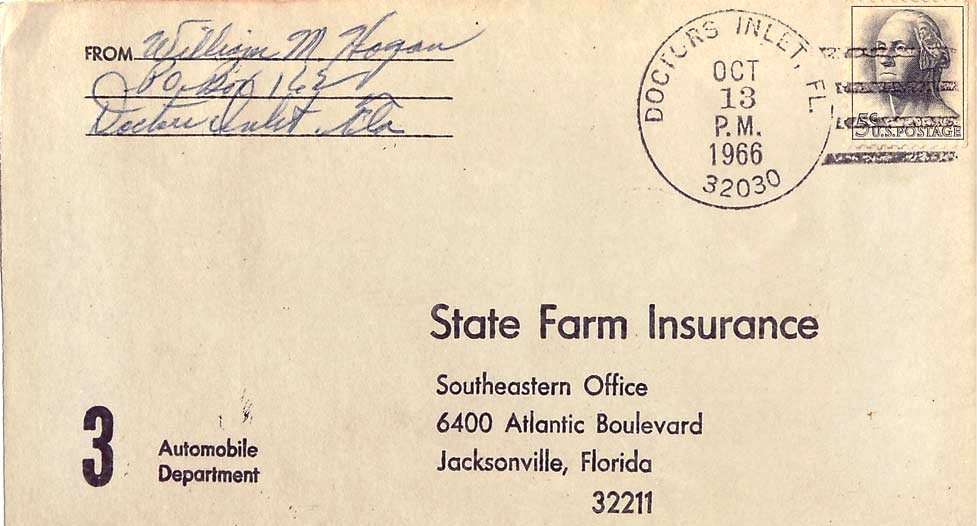 FROM William M. Hogan
P O Box 162
Doctors Inlet, Fla
DOCTORS INLET, FL.
OCT
13
P.M.
1966
32030
5¢
U.S. POSTAGE
State Farm Insurance
Southeastern Office
6400 Atlantic Boulevard
Jacksonville, Florida
32211
3
Automobile
Department